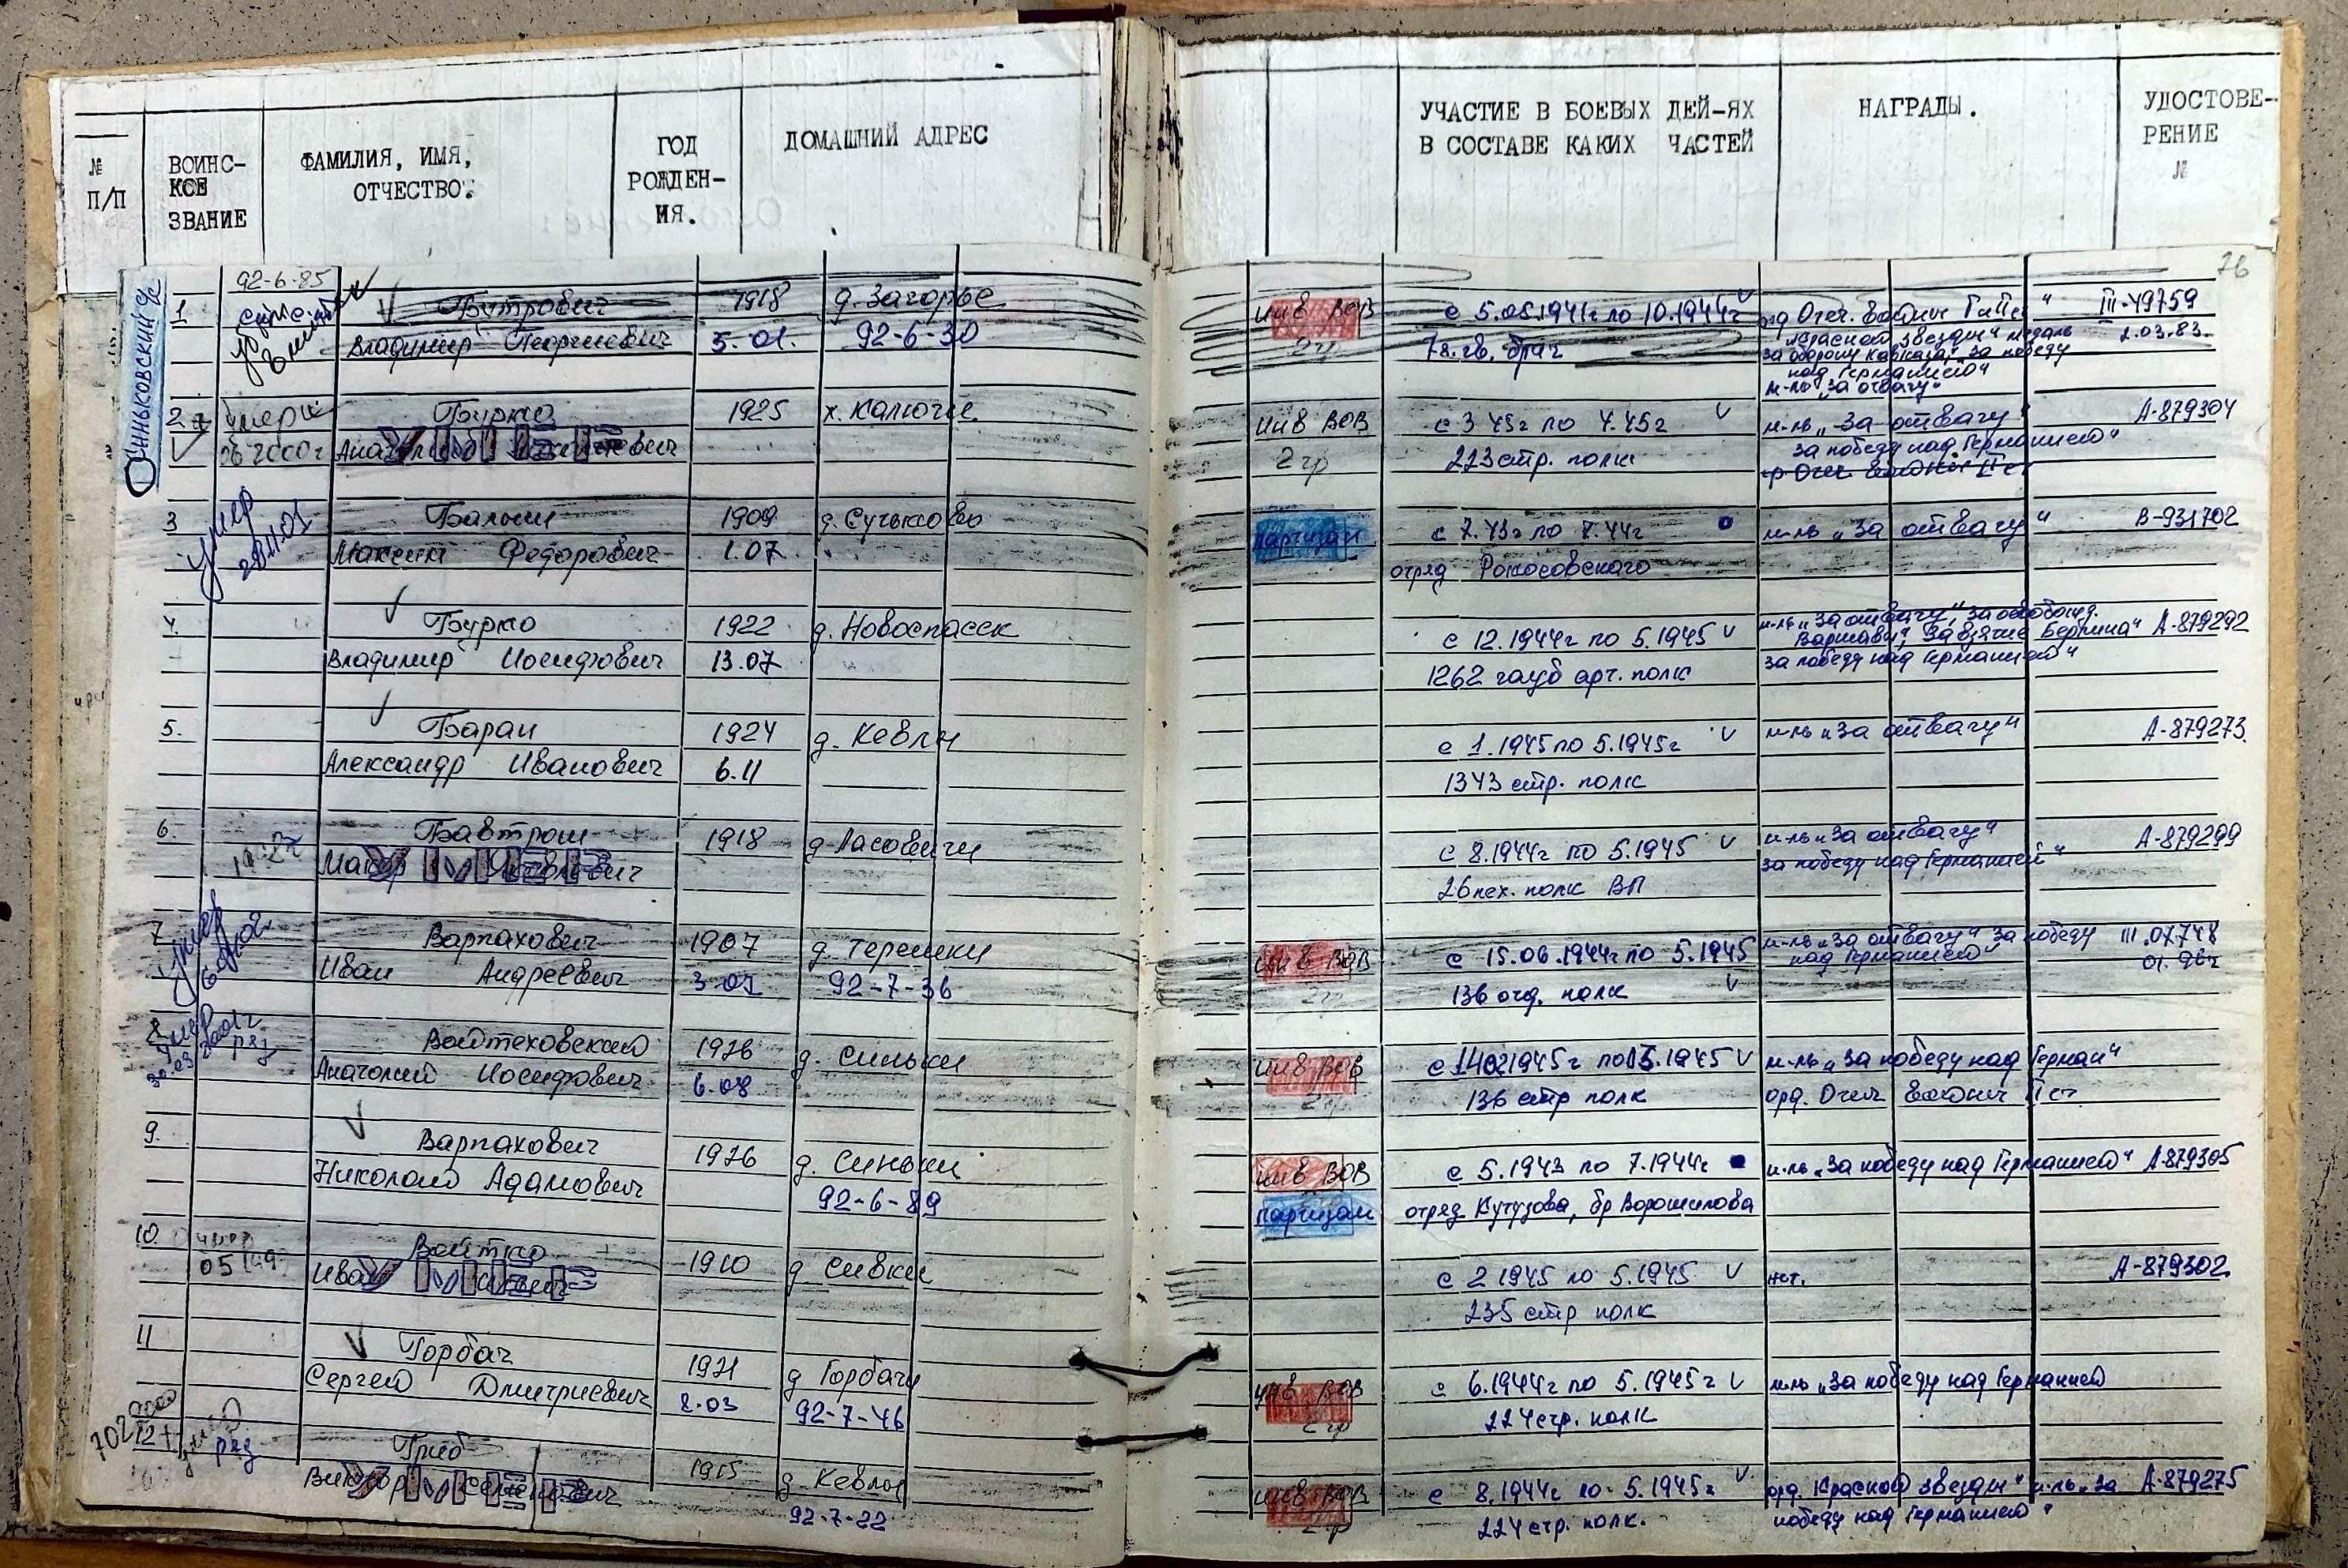 № П/П
ВОИНС-КОЕ ЗВАНИЕ
ФАМИЛИЯ, ИМЯ, ОТЧЕСТВО.
ГОД РОЖДЕН-ИЯ.
ДОМАШНИЙ АДРЕС
УЧАСТИЕ В БОЕВЫХ ДЕЙ-ЯХ
В СОСТАВЕ КАКИХ ЧАСТЕЙ
НАГРАДЫ.
УДОСТОВЕ-РЕНИЕ №
76
Синьковский с/с
92-6-85
1 Бутрович 1918 д. Загорье инв ВОВ с 5.05.1941г по 10.1944г III-49759
Владимир Георгиевич 5.01. 92-6-30 2гр 78 гв. 2.03.83.
"Красной звезды" медаль
за оборону Кавказа, за победу
над Германией"
м-ль "за отвагу"
2 умер Бурко 1925 х. Калюче инв ВОВ с 3 45г по 4.45г м-ль "За отвагу" А-879304
2000г УМЕР 2 гр 223 стр. полк за победу над Германией"
3 умер 1909 д. Сучково партизан с 7.43г по 7.44г м-ль "За отвагу" В-931702
Максим Федорович 1.07 отряд Рокосовского
4. Бурко 1922 д. Новоспасск с 12.1944г по 5.1945 м-ль "За отвагу", за освобожд. Варшавы, За взятие Берлина" А-879292
Владимир Иосифович 13.07 1262 гауб арт. полк за победу над Германией"
5. Баран 1924 д. Кевлы с 1.1945 по 5.1945г м-ль "За отвагу" А-879273
Александр Иванович 6.11 1343 стр. полк
6. Бавтрош 1918 д. Ласовичи с 8.1944г по 5.1945 м-ль "За отвагу" А-879299
УМЕР 26 пех. полк ВП за победу над Германией"
7 умер Варпахович 1907 д. Терешки инв ВОВ с 15.06.1944г по 5.1945 м-ль "За отвагу" за победу III.07748
Иван Андреевич 3.01 92-7-36 2гр 136 полк над Германией"
8 умер Войтеховский 1926 д. Синьки инв ВОВ м-ль "За победу над Герман"
30.03 2001г ряд Анатолий Иосифович 6.08 2гр 136 стр полк орд. Отеч Войны
9. Варпахович 1926 д. Синьки инв ВОВ с 5.1943 по 7.1944г м-ль "За победу над Германией" А-879305
Николай Адамович 92-6-89 партизан отряд Кутузова, бр Ворошилова
10 умер Войтко 1910 д Сивки с 2 1945 по 5.1945 нет. А-879302
05 Иван УМЕР 235 стр полк
11 Горбач 1921 д Горбачи инв ВОВ с 6.1944г по 5.1945г м-ль "За победу над Германией
Сергей Дмитриевич 8.03 92-7-46 2 гр 224 стр. полк
12 умер Гриб 1915 д Кевлы инв ВОВ с 8.1944г по 5.1945г орд. Красной звезды" м-ль "За А-879275
ряд Виктор УМЕР 92-7-22 2гр 224 стр. полк. победу над Германией"